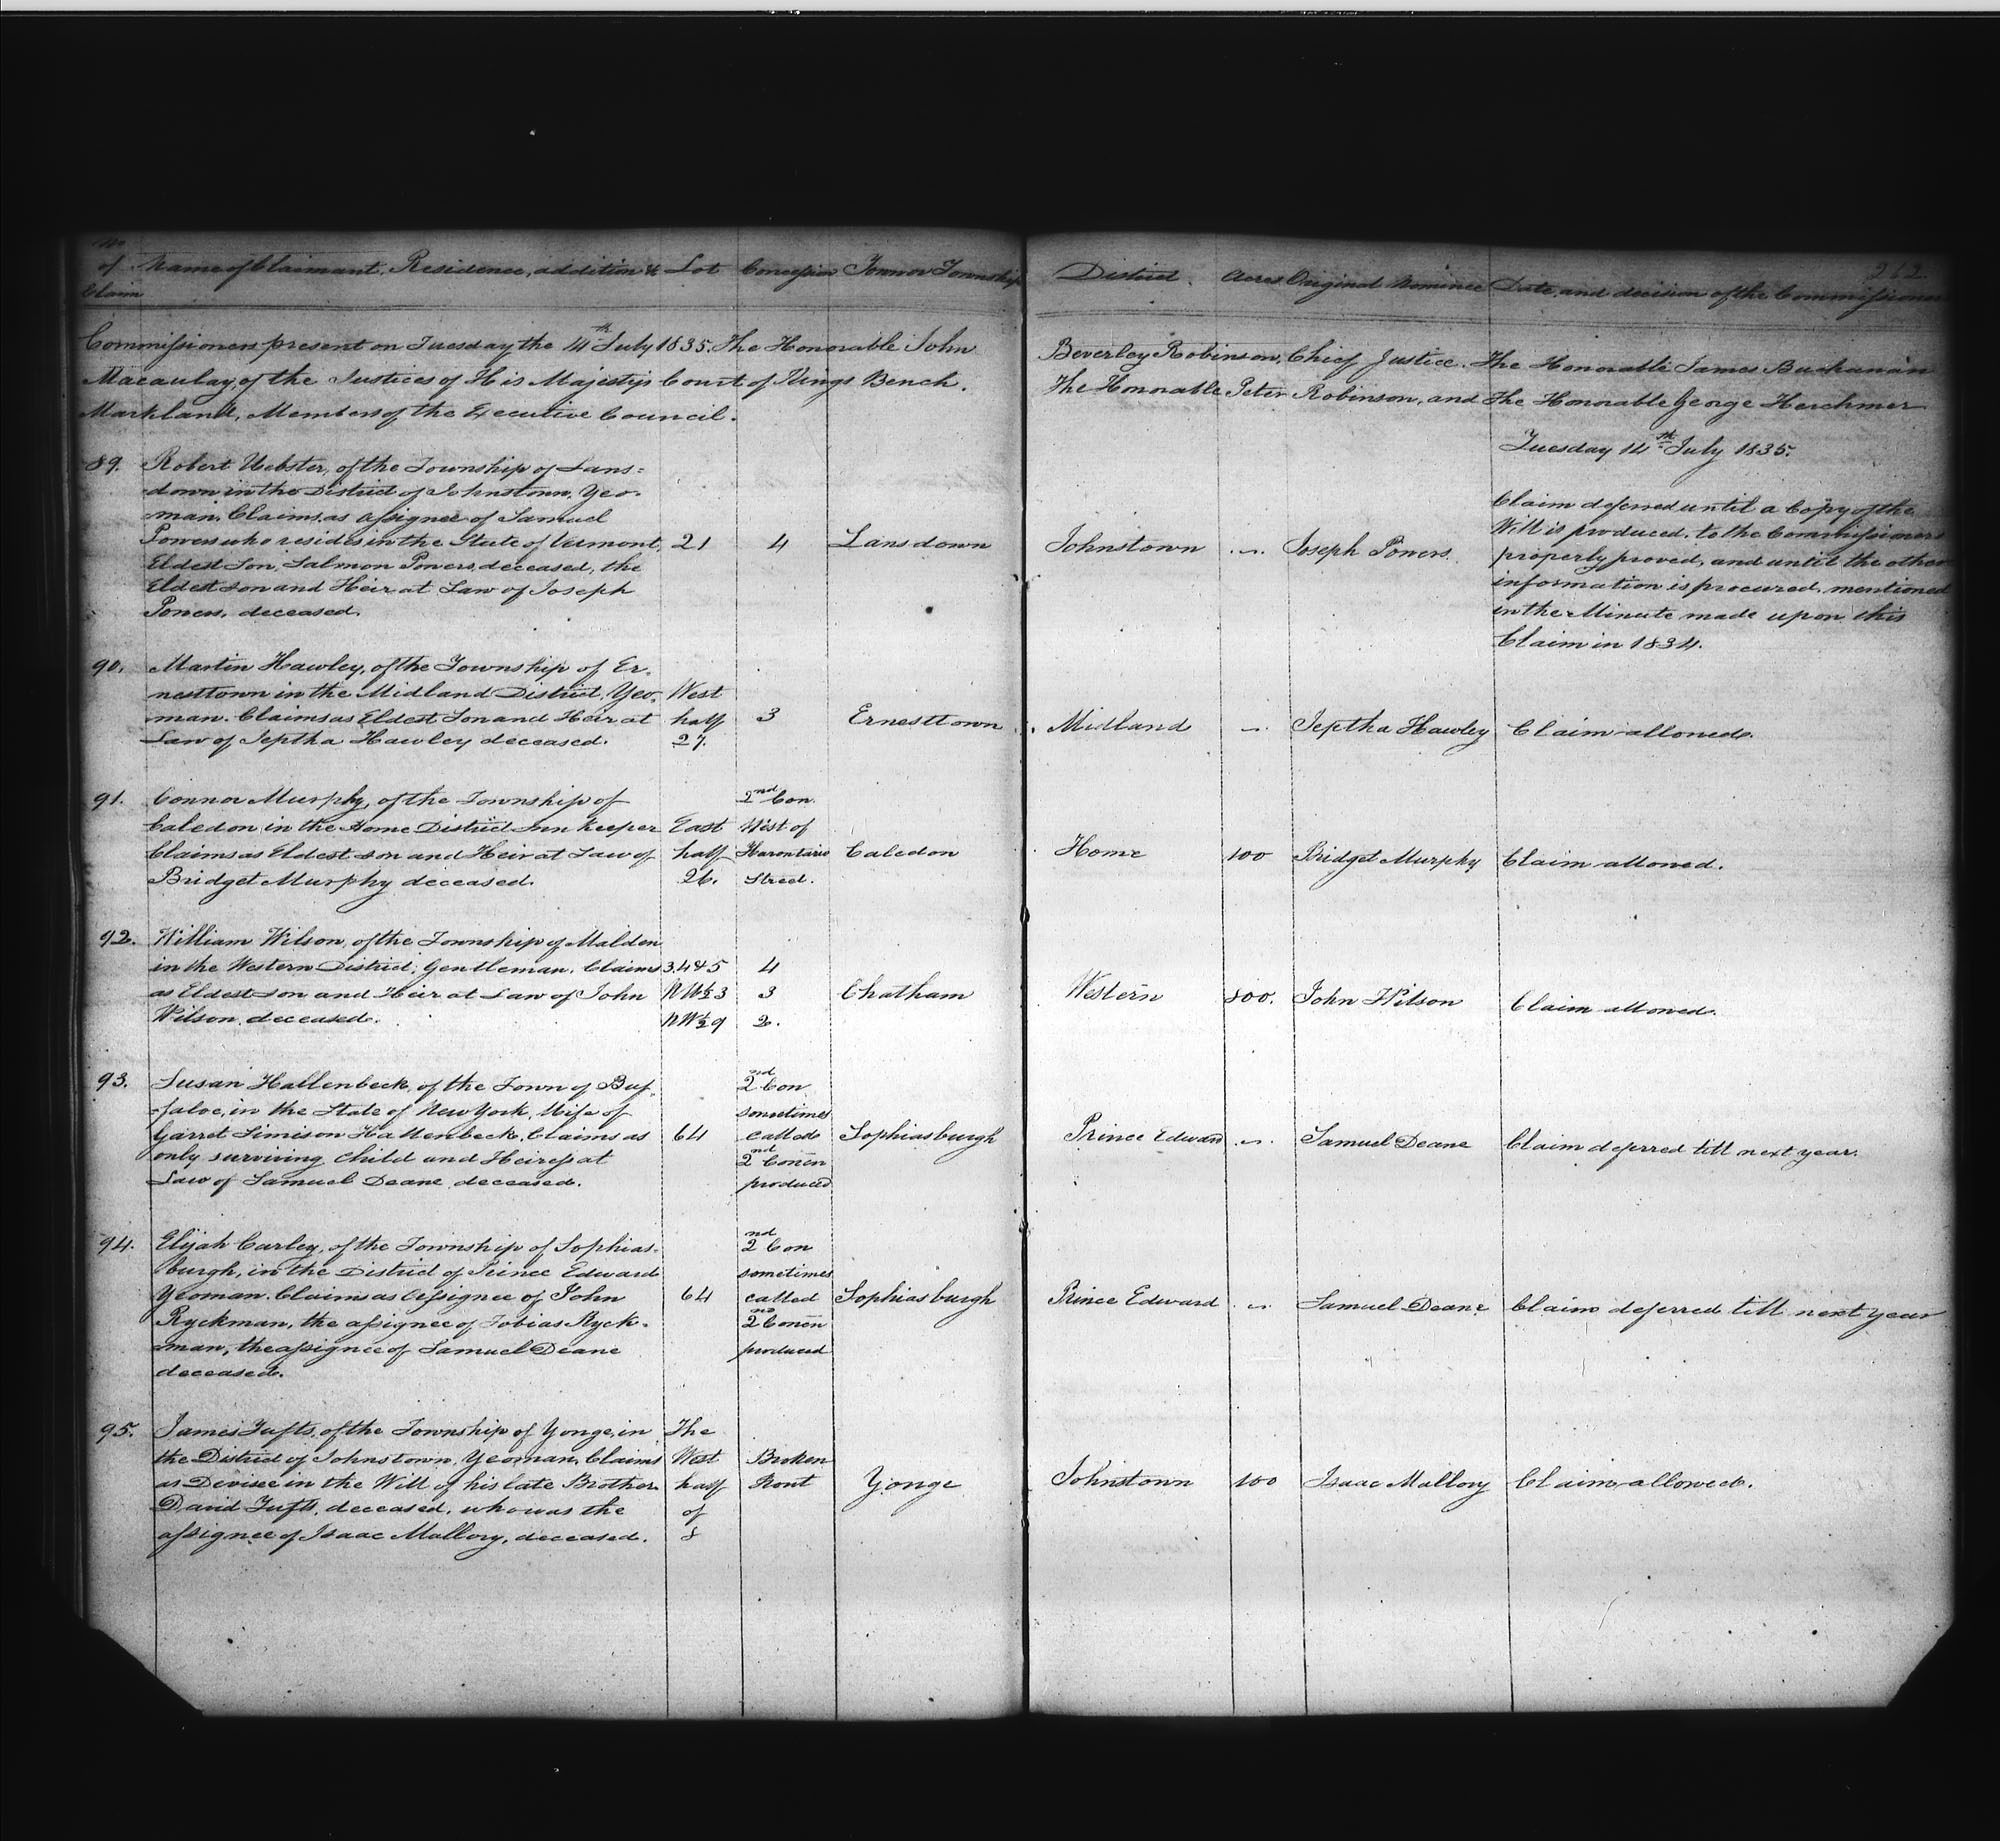 No of Claim | Name of Claimant, Residence, addition &c | Lot | Concession | Town or Township | District. | Acres | Original Nominee | Date and decision of the Commissioners
262
Commissioners present on Tuesday the 14th July 1835. The Honorable John Beverley Robinson, Chief Justice. The Honorable James Buchanan
Macaulay, of the Justices of His Majesty's Court of Kings Bench. The Honorable Peter Robinson, and The Honorable George Herchmer
Markland, Members of the Executive Council.
Tuesday 14th July 1835.
89. Robert Webster, of the Township of Lans=
down in the District of Johnstown, Yeo-
man, Claims, as assignee of Samuel
Powers who resides in the State of Vermont,
Eldest Son, Salmon Powers, deceased, the
Eldest son and Heir at Law of Joseph
Powers, deceased.
21
4
Lansdown
Johnstown
"
Joseph Powers.
Claim deferred until a Copy of the
Will is produced, to the Commissioners
properly proved, and until the other
information is procured, mentioned
in the Minute made upon this
Claim in 1834.
90. Martin Hawley, of the Township of Er-
nesttown in the Midland District, Yeo-
man. Claims as Eldest Son and Heir at
Law of Jeptha Hawley deceased.
West
half
27.
3
Ernesttown
Midland
"
Jeptha Hawley
Claim allowed.
91. Connor Murphy, of the Township of
Caledon, in the Home District Inn keeper
Claims as Eldest son and Heir at Law of
Bridget Murphy deceased.
East
half
26.
2nd Con.
West of
Hurontario
Street.
Caledon
Home
100
Bridget Murphy
Claim allowed.
92. William Wilson, of the Township of Malden
in the Western District, Gentleman. Claims
as Eldest son and Heir at Law of John
Wilson, deceased.
3.4&5
NW½3
NW½9
4
3
2.
Chatham
Western
800.
John Wilson
Claim allowed.
93. Susan Hallenbeck, of the Town of Buf-
faloe, in the State of New York, Wife of
Garret Simison Hallenbeck, Claims as
only surviving Child and Heiress at
Law of Samuel Deane, deceased.
64
2nd Con
sometimes
called
2nd Con en
produced
Sophiasburgh
Prince Edward
"
Samuel Deane
Claim deferred till next year.
94. Elijah Carley, of the Township of Sophias-
burgh, in the District of Prince Edward
Yeoman. Claims as Assignee of John
Ryckman, the assignee of Tobias Ryck-
man, the assignee of Samuel Deane
deceased.
64
2nd Con
sometimes
called
2nd Con en
produced
Sophiasburgh
Prince Edward
"
Samuel Deane
Claim deferred till next year
95. James Tufts, of the Township of Yonge, in
the District of Johnstown, Yeoman, Claims
as Devisee in the Will of his late Brother
David Tufts, deceased, who was the
assignee of Isaac Mallory, deceased.
The
West
half
of
8
Broken
Front
Yonge
Johnstown
100
Isaac Mallory
Claim allowed.